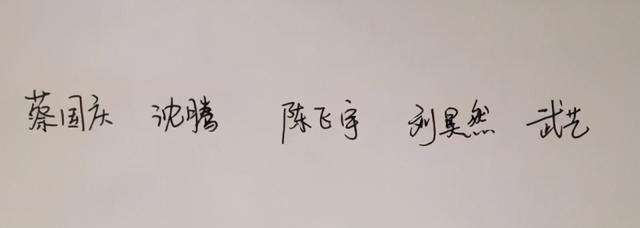 蔡国庆 沈腾 陈飞宇 刘昊然 武艺